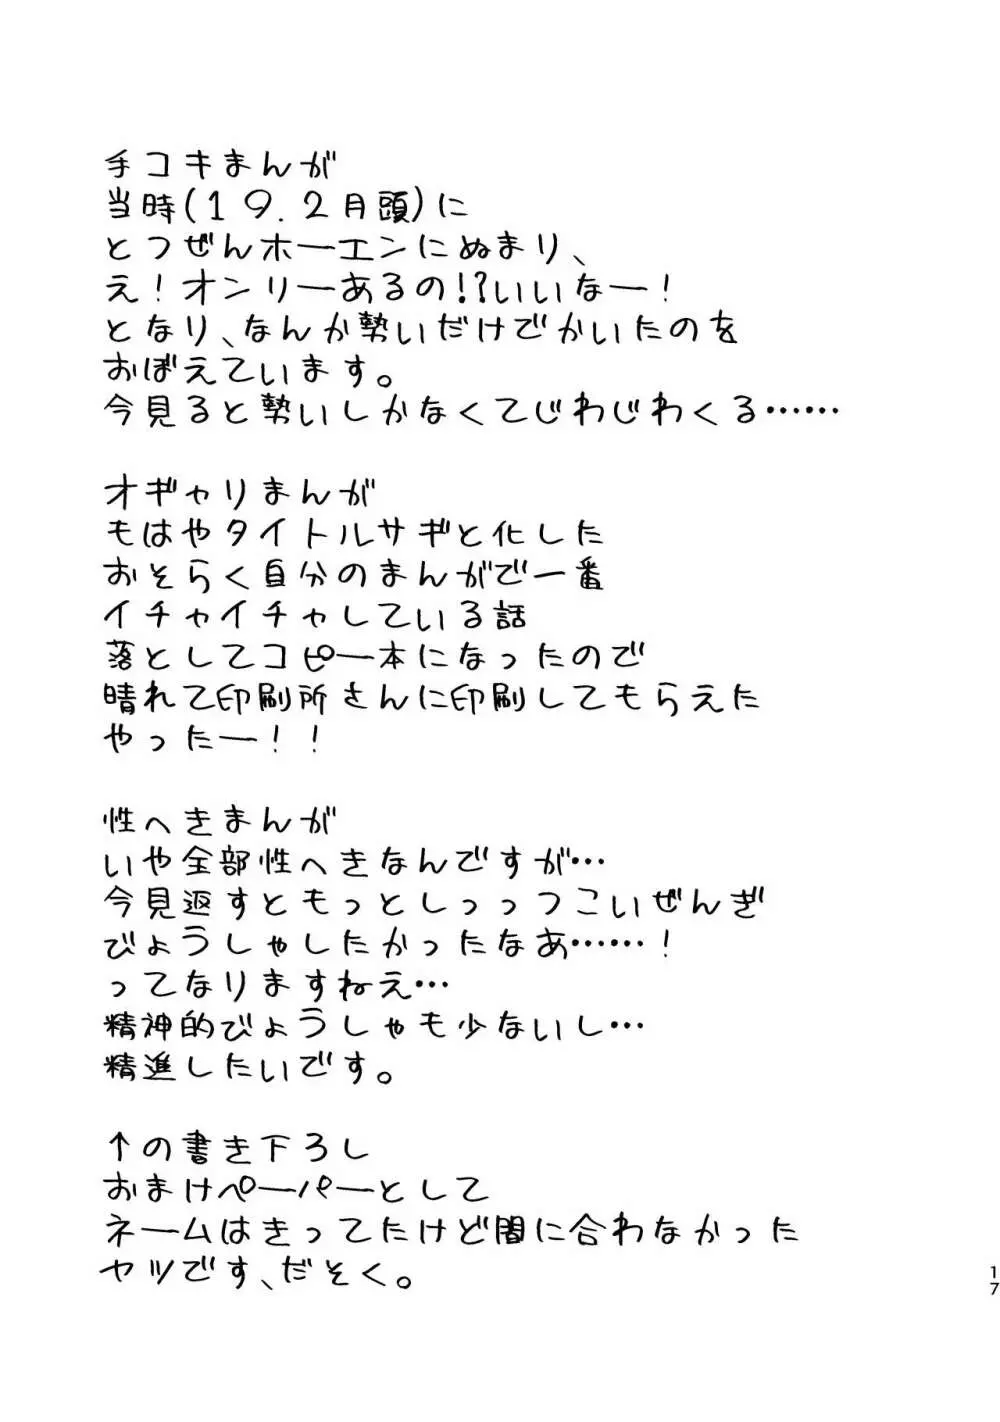 手コキまんが
当時(19.2月頭)に
とつぜんホーエンにぬまり、
え!オンリーあるの!?いいなー!
となり、なんか勢いだけでかいたのを
おぼえています。
今見ると勢いしかなくてじわじわくる……
オギャリまんが
もはやタイトルサギと化した
おそらく自分のまんがで一番
イチャイチャしている話
落としてコピー本になったので
晴れて印刷所さんに印刷してもらえた
やったー!!
性へきまんが
いや全部性へきなんですが…
今見返すともっとしっっつこいぜんぎ
びょうしゃしたかったなあ……!
ってなりますねえ…
精神的びょうしゃも少ないし…
精進したいです。
↑の書き下ろし
おまけペーパーとして
ネームはきってたけど間に合わなかった
ヤツです、だそく。
17